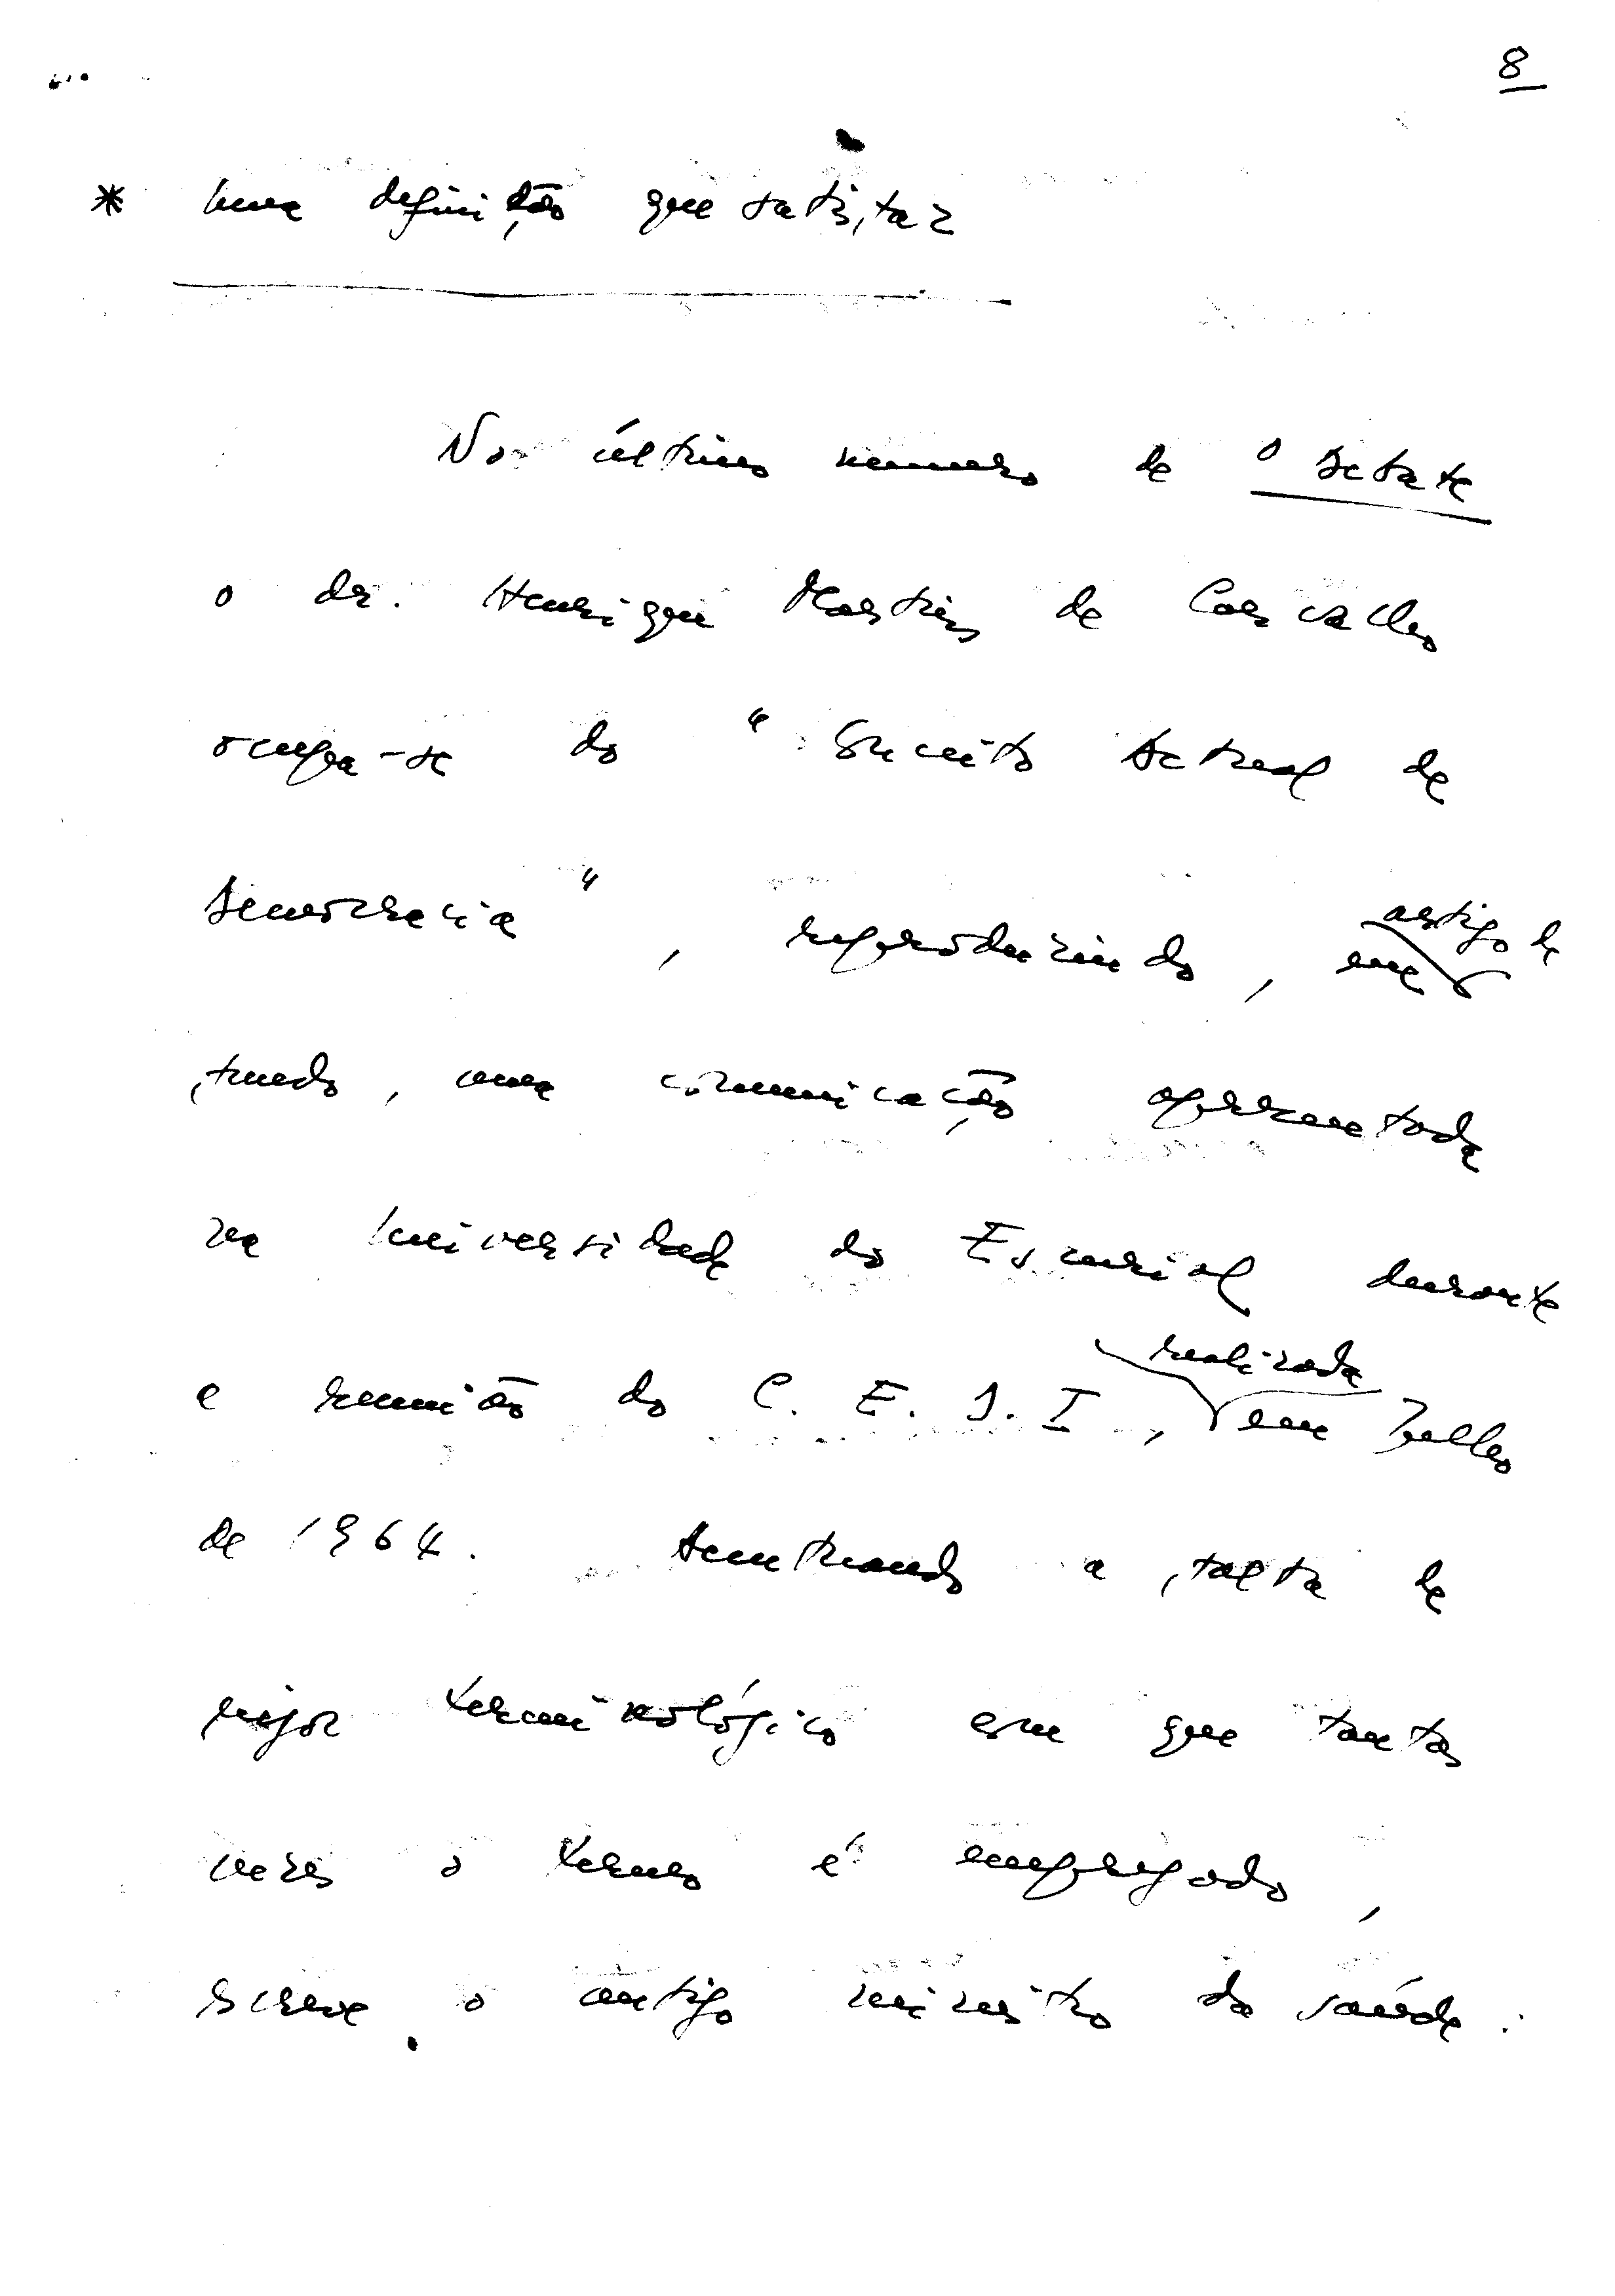 8
* Uma definição que satisfaz
No último número de o Debate
o dr. Henrique Martins de Carvalho
ocupa-se do "Conceito Actual de
Democracia", reproduzindo, em artigo de
fundo, uma comunicação apresentada
na Universidade do Escurial durante
a reunião do C. E. D. I., realizada em Julho
de 1964. Acentuando a falta de
rigor terminológico em que tantas
vezes o termo é empregado,
escreve o antigo ministro da saúde: